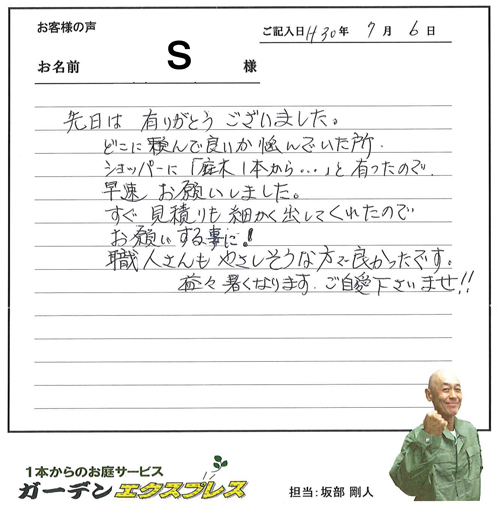 お客様の声
ご記入日 H30年 7月 6日
お名前 S 様
先日は 有りがとう ございました。
どこに頼んで良いか悩んでいた所、
ショッパーに「庭木1本から・・・」と有ったので、
早速 お願いしました。
すぐ 見積りも 細かく出してくれたので
お願いする事に!
職人さんも やさしそうな方で良かったです。
益々 暑くなります、ご自愛下さいませ!!
1本からのお庭サービス
ガーデンエクスプレス
担当:坂部 剛人